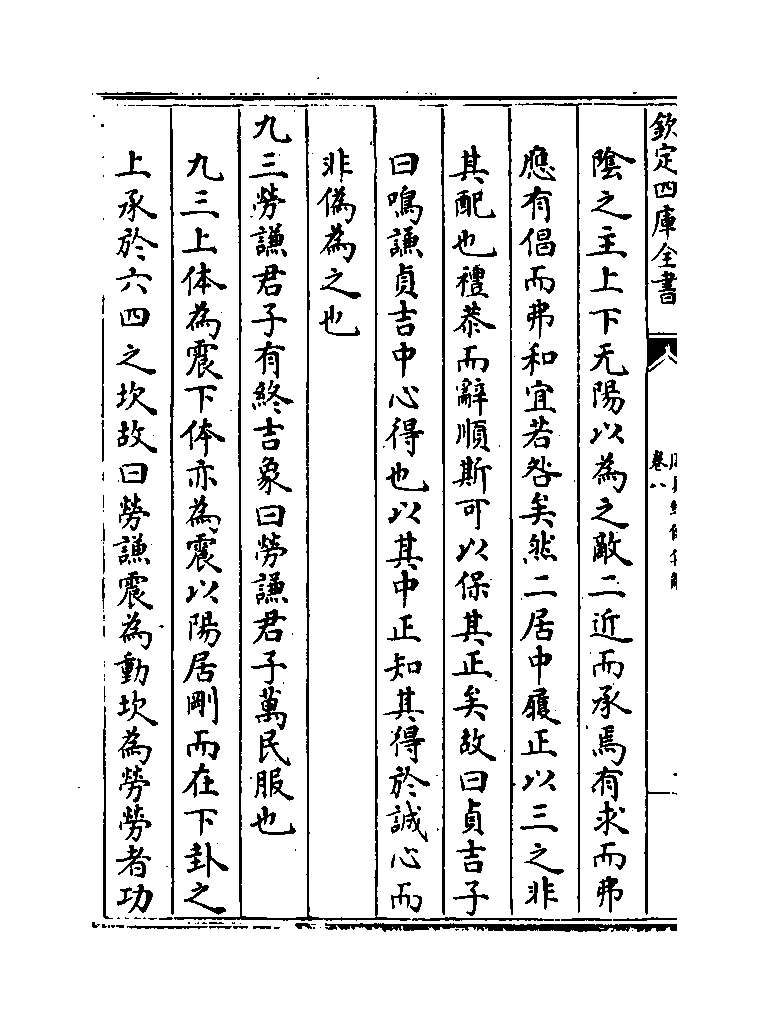 欽定四庫全書
卷八
陰之主上下无陽以為之敵二近而承焉有求而弗
應有倡而弗和宜若咎矣然二居中履正以三之非
其配也禮恭而辭順斯可以保其正矣故曰貞吉子
曰鳴謙貞吉中心得也以其中正知其得於誠心而
非偽為之也
九三勞謙君子有終吉象曰勞謙君子萬民服也
九三上体為震下体亦為震以陽居剛而在下卦之
上承於六四之坎故曰勞謙震為動坎為勞勞者功